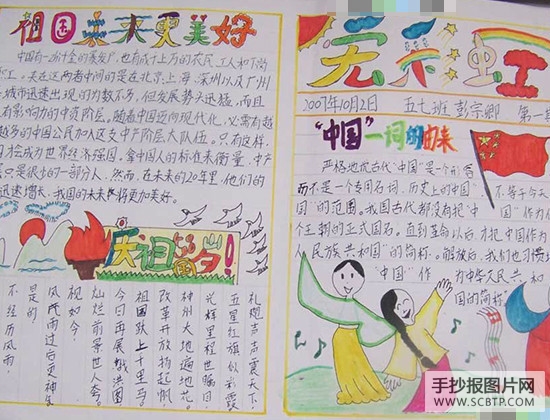 祖国未来更美好
中国有一些什全的暴发户,也有成十上万的农民、工人和下岗
工。夹在这两者中间的是在北京、上海、深圳以及广州
城市迅速出现的为数不多,但发展势头迅猛,而且
有影响力的中资阶层。随着中国迈向现代化,必需有越
越多的中国公民加入这支中产阶层大队伍。只有这样,
才会成为世界经济强国。拿中国人的标准来衡量,中产
层只是很小的一部分人,然而,在未来的20年里,他们的
迅速增长,我国的未来将更加美好。
庆祖国岁!
礼炮声声震天下
五星红旗似彩霞
光辉里程世瞩目
神州大地遍地花。
改革开放扬起帆
祖国跃上千里马
今日再展鸿图
灿烂前景世人夸。
视如今?
风雨过后更神
是的
不经历风雨,
无彩虹
2007年10月2日 五七班 彭宗卿 第一
"中国"一词的由来
严格地说古代"中国"是个形容
而不是一个专用名词,历史上的"中国" 不等于今天
国"的范围。我国古代都没有把"中 国"作为
个王朝的正式国名。直到革命以后才把"中国"作为
人民族共和国"的简称。解放后,我们也习惯
"中国"作 为中华人民共和
国的简称。
手抄报图片网
WWW.SCBTP.COM